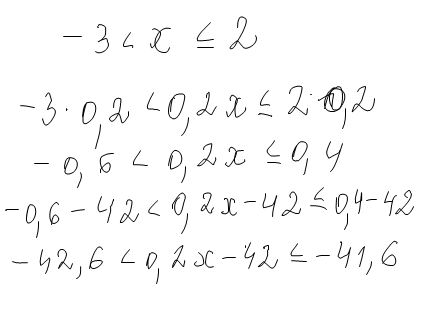 -3 < x ≤ 2
-3 · 0,2 < 0,2x ≤ 2 · 0,2
-0,6 < 0,2x ≤ 0,4
-0,6 - 42 < 0,2x - 42 ≤ 0,4 - 42
-42,6 < 0,2x - 42 ≤ -41,6